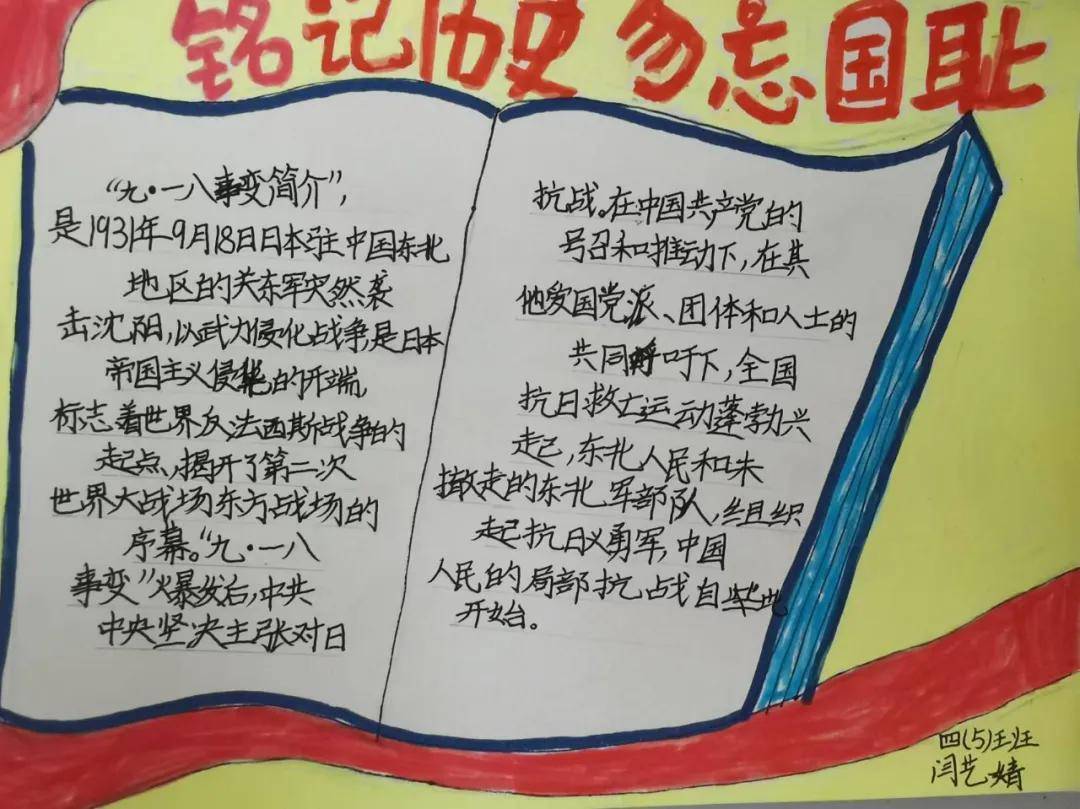 铭记历史勿忘国耻
“九·一八事变简介”,
是1931年9月18日日本驻中国东北
地区的关东军突然袭
击沈阳,以武力侵化战争,是日本
帝国主义侵华的开端,
标志着世界反法西斯战争的
起点,揭开了第二次
世界大战场东方战场的
序幕。“九·一八
事变”爆发后,中共
中央坚决主张对日
抗战。在中国共产党的
号召和推动下,在其
他爱国党派、团体和人士的
共同呼吁下,全国
抗日救亡运动蓬勃兴
起,东北人民和未
撤走的东北军部队,组织
起抗日义勇军,中国
人民的局部抗战自此
开始。
四(5)班
闫艺婧